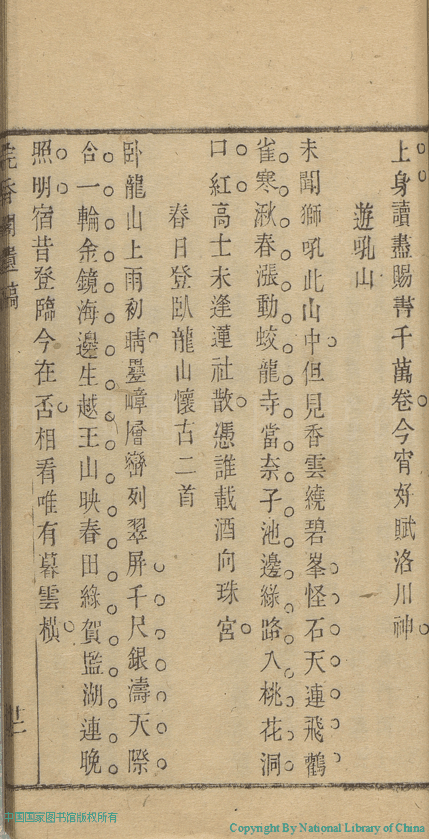 上身讀盡賜書千萬卷今宵好賦洛川神
遊吼山
未聞獅吼此山中但見香雲繞碧峯怪石天連飛鸛
雀寒湫春漲動蛟龍寺當柰子池邊綠路入桃花洞
口紅高士未逢蓮社散憑誰載酒向珠宮
春日登臥龍山懷古二首
卧龍山上雨初晴曡嶂層巒列翠屏千尺銀濤天際
合一輪金鏡海邊生越王山映春田綠賀監湖連晚
照明宿昔登臨今在否相看唯有暮雲橫
浣香閣遺稿
廿一
中国国家图书馆版权所有
Copyright By National Library of China